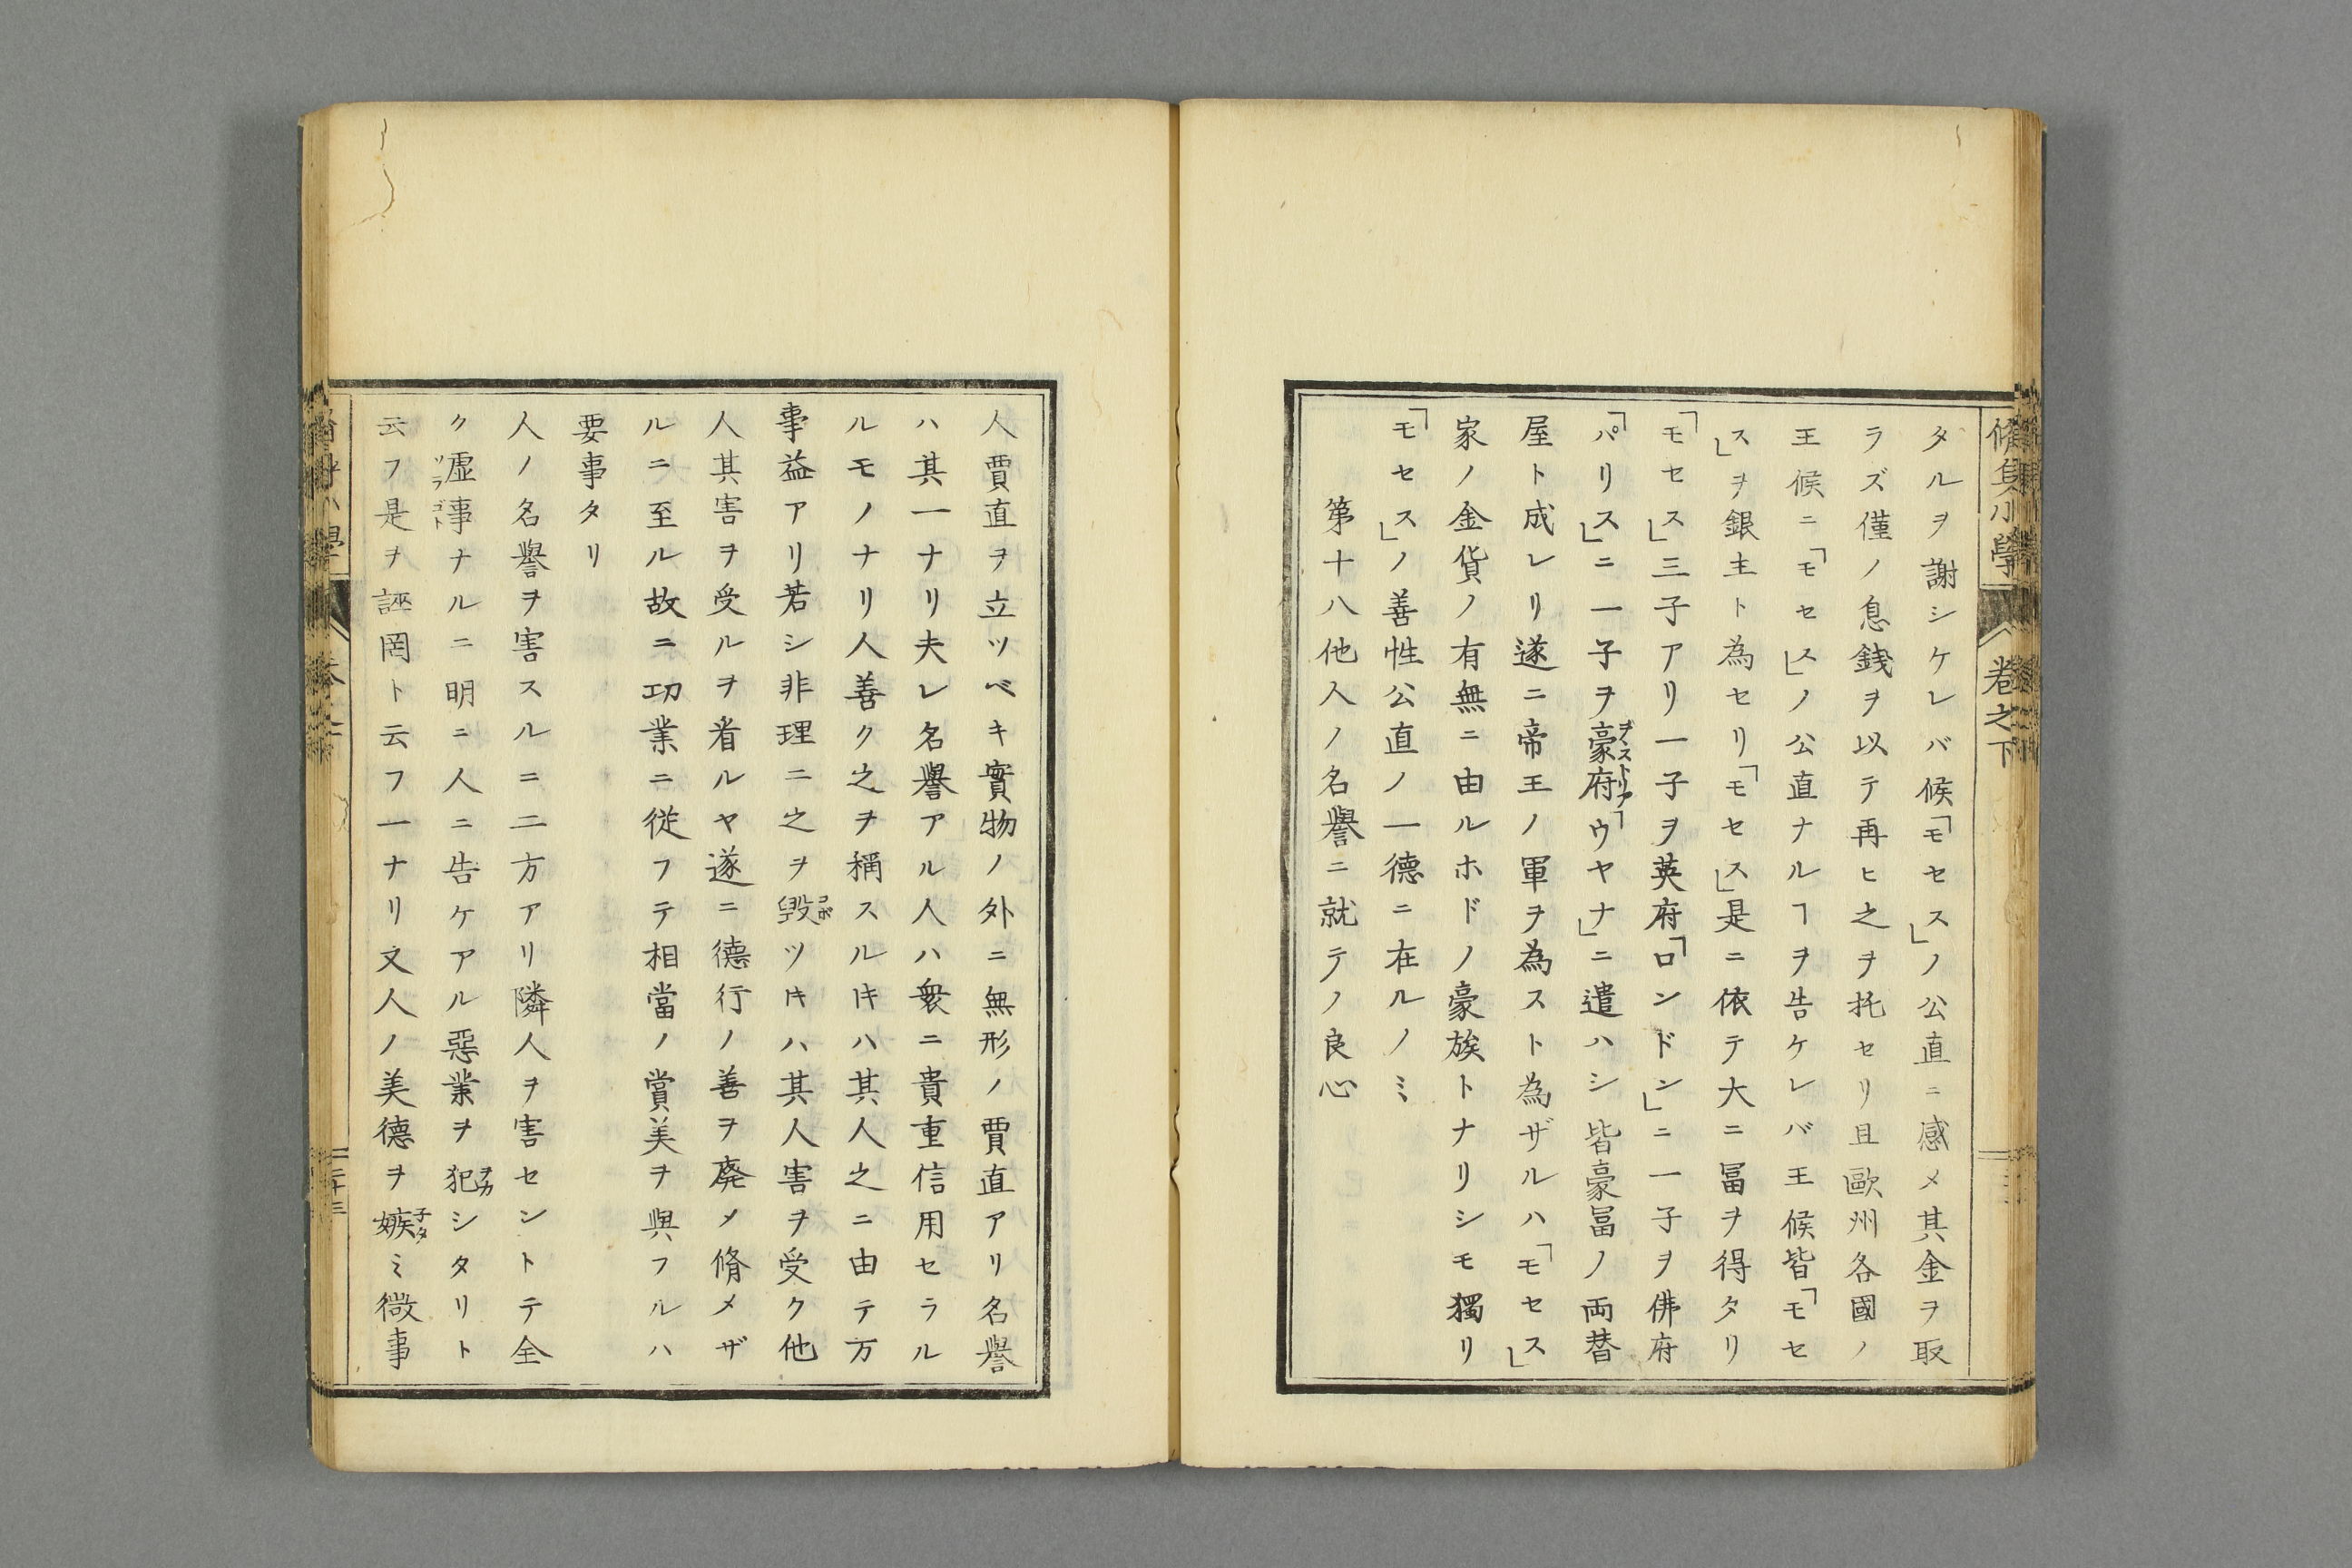 脩身小學
卷之下
タルヲ謝シケレバ候「モセス」ノ公直ニ感メ其金ヲ取
ラズ僅ノ息錢ヲ以テ再ヒ之ヲ托セリ且歐州各國ノ
王候ニ「モセス」ノ公直ナルヿヲ告ケレバ王候皆「モセ
ス」ヲ銀主ト為セリ「モセス」是ニ依テ大ニ冨ヲ得タリ
「モセス」三子アリ一子ヲ英府「ロンドン」ニ一子ヲ佛府
「パリス」ニ一子ヲ豪府「ウヤナ」ニ遣ハシ皆豪冨ノ両替
屋ト成レリ遂ニ帝王ノ軍ヲ為スト為ザルハ「モセス」
家ノ金貨ノ有無ニ由ルホドノ豪族トナリシモ獨リ
「モセス」ノ善性公直ノ一德ニ在ルノミ
第十八他人ノ名譽ニ就テノ良心
人賈直ヲ立ツベキ實物ノ外ニ無形ノ賈直アリ名譽
ハ其一ナリ夫レ名譽アル人ハ衆ニ貴重信用セラル
ルモノナリ人善ク之ヲ稱スルㇳキハ其人之ニ由テ方
事益アリ若シ非理ニ之ヲ毀ツㇳキハ其人害ヲ受ク他
人其害ヲ受ルヲ看ルヤ遂ニ德行ノ善ヲ廃メ脩メザ
ルニ至ル故ニ功業ニ従フテ相當ノ賞美ヲ與フルハ
要事タリ
人ノ名譽ヲ害スルニ二方アリ隣人ヲ害セントテ全
ク虚事ナルニ明ニ人ニ告ケアル惡業ヲ犯シタリト
云フ是ヲ誣罔ト云フ一ナリ又人ノ美德ヲ嫉ミ微事